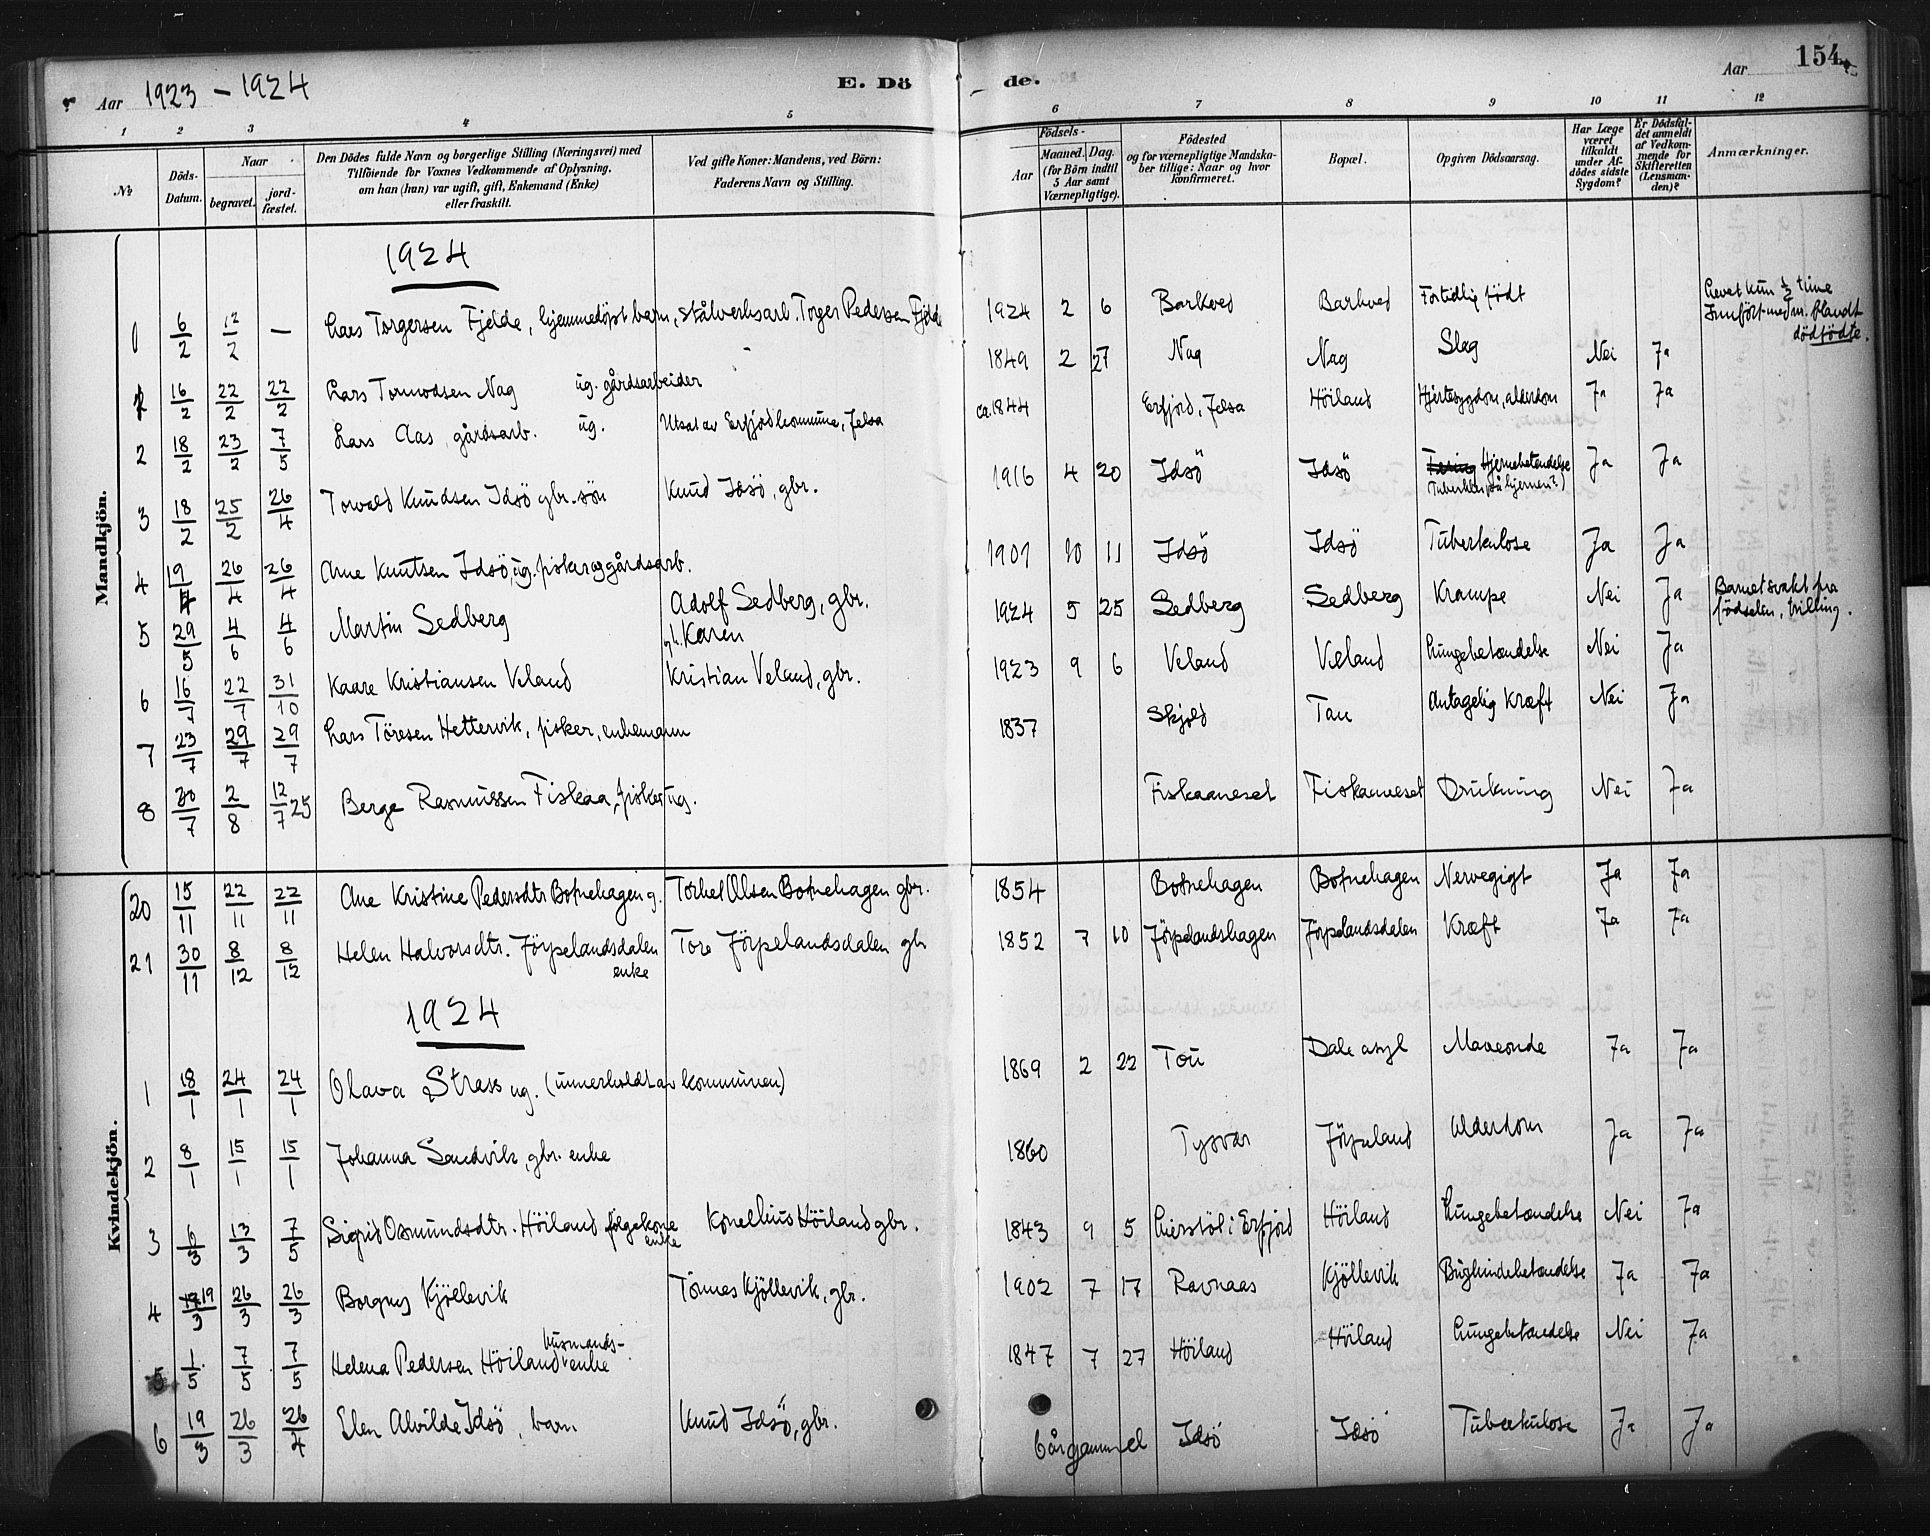 Aar 1923 – 1924
E. Dö de.
Aar 154
1 2 3 4 5 6 7 8 9 10 11 12
No
Döds-Datum.
Naar
begravet.
jord-fæstet.
Den Dödes fulde Navn og borgerlige Stilling (Næringsvei) med
Tilföiende for Voxnes Vedkommende af Oplysning,
om han (hun) var ugift, gift, Enkemand (Enke)
eller fraskilt.
Ved gifte Koner: Mandens, ved Börn:
Faderens Navn og Stilling.
Födsels-
Aar
Maaned. Dag.
(for Börn indtil
5 Aar samt
Værnepligtige).
Födested
og for værnepligtige Mandska-
ber tillige: Naar og hvor
konfirmeret.
Bopæl.
Opgiven Dödsaarsag.
Har Læge
været
tilkaldt
under Af-
dödes sidste
Sygdom?
Er Dödsfal-
det anmeldt
af Vedkom-
mende for
Skifteretten
(Lensman-
den)?
Anmærkninger.
Mandkjön.
1924
1 6/2 12/2 — Lars Torgersen Fjelde, hjemmedöpt barn, stålverksarb. Torger Pedersen Fjelde 1924 2 6 Barkved Barkved Fortidlig födt Levet kun ½ time
Innfört med nr. blandt
dödfödte.
1 16/2 22/2 22/2 Lars Tormodsen Nag ug. gårdsarbeider 1849 2 27 Nag Nag Slag Nei Ja
2 18/2 23/2 7/5 Lars Aas, gårdsarb. ug. Utsat av Erfjord kommune, Jelsa ca. 1844 Erfjord, Jelsa Höiland Hjertesygdom, alderdom Ja Ja
3 18/2 25/2 26/4 Torvald Knudsen Idsö gbr. sön Knud Idsö, gbr. 1916 4 20 Idsö Idsö Hjernebetendelse Ja Ja
(Tuberkler på hjernen?)
4 19/4 26/4 26/4 Arne Knutsen Idsö, ug. fisker og gårdsarb. 1901 10 11 Idsö Idsö Tuberkulose Ja Ja
5 29/5 4/6 4/6 Martin Sedberg Adolf Sedberg, gbr. 1924 5 25 Sedberg Sedberg Krampe Nei Ja Barnet svakt fra
Karen födselen, trilling.
6 16/7 22/7 31/10 Kaare Kristiansen Veland Kristian Veland, gbr. 1923 9 6 Veland Veland Lungebetændelse Nei Ja
7 23/7 29/7 29/7 Lars Töresen Hettervik, fisker, enkemann 1837 Skjold Tau Antagelig Kræft Nei Ja
8 20/7 2/8 12/7 25 Berge Rasmussen Fiskaa, fisker ug. Fiskaaneset Fiskaaneset Drukning Nei Ja
Kvindekjön.
20 15/11 22/11 22/11 Ane Kristine Pedersdtr Botnehagen g. Torkel Olsen Botnehagen gbr. 1854 Botnehagen Botnehagen Nervegigt Ja Ja
21 30/11 8/12 8/12 Helen Halvorsdtr. Jörpelandsdalen Tore Jörpelandsdalen gb 1852 7 10 Jörpelandshagen Jörpelandsdalen Kræft Ja Ja
enke
1924
1 18/1 24/1 24/1 Olava Strass ug. (underholdt av kommunen) 1869 2 22 Tou Dale asyl Maveonde Ja Ja
2 8/1 15/1 15/1 Johanna Sandvik, gbr. enke 1860 Tysvær Jörpeland Alderdom Ja Ja
3 6/3 13/3 7/5 Sigrid Osmundsdtr. Höiland fölgekone Kornelius Höiland gbr. 1843 9 5 Lierstöl i Erfjord Höiland Lungebetændelse Nei Ja
enke
4 19/3 26/3 26/3 Borgny Kjöllevik Tönnes Kjöllevik, gbr. 1902 7 17 Ravnaas Kjöllevik Bughindebetændelse Ja Ja
5 1/5 7/5 7/5 Helena Pedersen Höiland husmands-enke 1847 7 27 Höiland Höiland Lungebetændelse Nei Ja
6 19/3 26/3 26/4 Elen Alvilde Idsö, barn Knud Idsö, gbr. 6 år gammel Idsö Idsö Tuberkulose Ja Ja